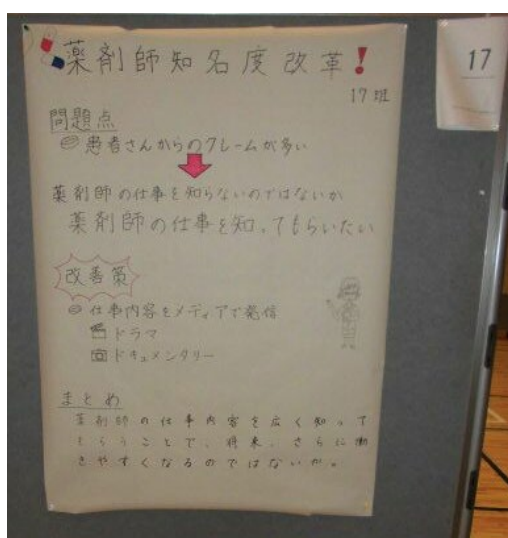 薬剤師知名度改革!
17班
17
問題点
患者さんからのクレームが多い
薬剤師の仕事を知らないのではないか
薬剤師の仕事を知ってもらいたい
改善策
仕事内容をメディアで発信
ドラマ
ドキュメンタリー
まとめ
薬剤師の仕事内容を広く知って
もらうことで、将来、さらに働
きやすくなるのではないか。